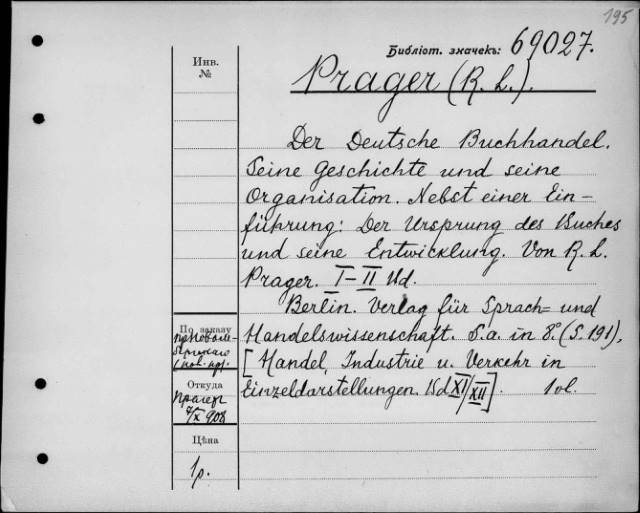 195
Библіот. значекъ: 69027.
Инв.
№
Prager (R. L.).
Der Deutsche Buchhandel.
Seine Geschichte und seine
Organisation. Nebst einer Ein-
führung: Der Ursprung des Buches
und seine Entwicklung. Von R. L.
Prager. I-II Bd.
Berlin. Verlag für Sprach= und
Handelswissenschaft. S. a. in 8°. (S. 191).
[Handel, Industrie u. Verkehr in
Einzeldarstellungen. Bd XI/XII]. 1 vol.
По заказу
Откуда
Прагеръ
7/X 908
Цѣна
1 р.